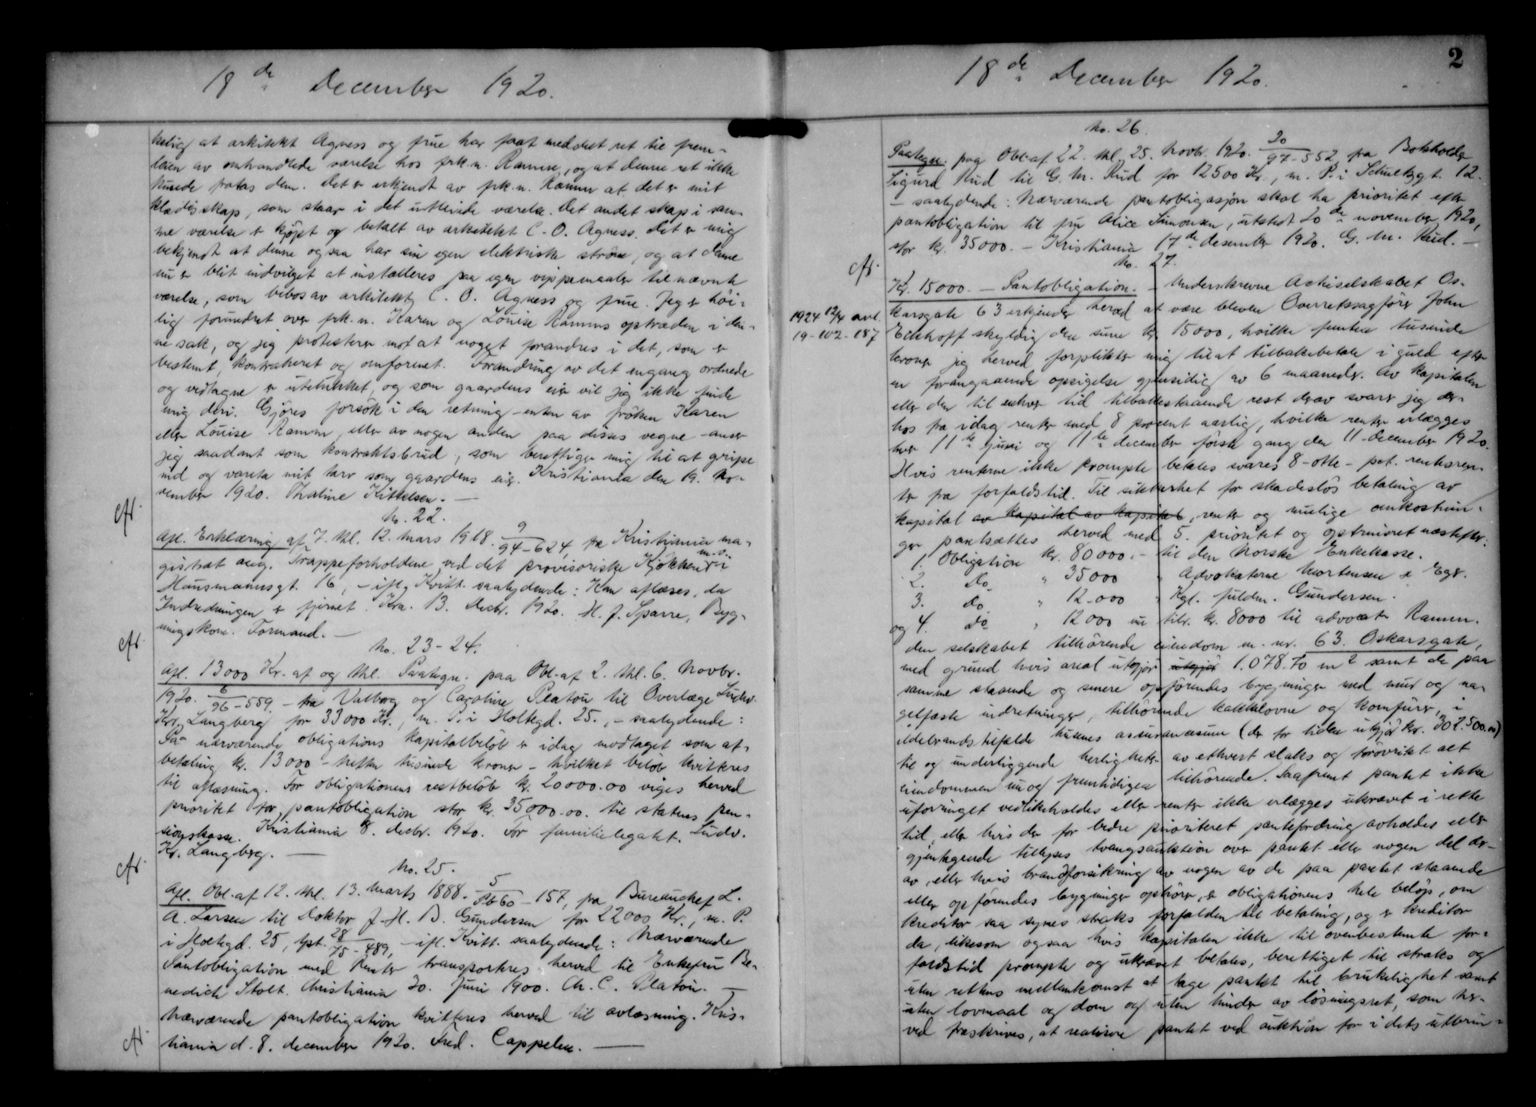 18de December 1920.
kelig at arkitekt Agness og frue har faat meddelt ret til frem-
leien av omhandlede værelse hos frk.n. Ramm, og at denne ret ikke
kunde fratas dem. Det er erkjendt av frk.n. Ramm at det er mit
klædeskap, som staar i det utleiede værelse. Det andet skap i sam-
me værelse er kjøpt og betalt av arkitekt C. O. Agness. Det er mig
bekjendt at denne ogsaa har sin egen elektriske strøm, og at denne
nu er blit indvilget at installeres paa egen vippemaaler til nævnte
værelse, som bebos av arkitekt C. O. Agness og frue. Jeg er høi-
lig forundret over frk.n. Karen og Louise Ramms optræden i den-
ne sak, og jeg protesterer mot at noget forandres i det, som er
bestemt, kontrahert og omforenet. Forandring av det engang ordnede
og vedtagne er utelukket, og som gaardens eier vil jeg ikke finde
mig deri. Gjøres forsøk i den retning - enten av frøken Karen
eller Louise Ramm, eller av nogen anden paa disses vegne - anser
jeg saadant som kontraktsbrud, som berettiger mig til at gripe
ind og vareta mit tarv som gaardens eier. Kristiania den 19. No-
vember 1920. Thaline Kittelsen. —
No. 22.
Afl. Erklæring af 7. thl. 12. mars 1918. 9/94-624, fra Kristiania ma-
gistrat ang. Trappeforholdene ved det provisoriske Kjøkken m.v. i
Hausmannsgt. 16, - ifl. Kvitt. saalydende: Kan aflæses, da
Indredningen er fjernet. Kra. 13. decbr. 1920. H. J. Sparre, Byg-
ningskom. Formand. —
No. 23-24.
Afl. 13000 Kr. af og thl. Paategn. paa Obl. af 2. thl. 6. Novbr.
1920. 6/96-559 - fra Valborg og Caroline Platou til Overlæge Ludv.
Kr. Langberg for 33000 Kr., m. P. i Holtegd. 25, - saalydende:
Paa nærværende obligations kapitalbeløb er idag modtaget som af-
betaling kr. 13000 - tretten tusinde kroner - hvilket beløb kvitteres
til aflæsning. For obligationens restbeløb kr. 20000.00 viges herved
prioritet for pantobligation stor kr. 35000.00 til statens pen-
sionskasse. Kristiania 8. decbr. 1920. For familielegatet. Ludv.
Kr. Langberg. —
No. 25.
Afl. Obl. af 12. thl. 13. marts 1888. 5/Pb 60-157, fra Bureauchef L.
A. Larsen til Doktor J. H. B. Gundersen for 22000 Kr., m. P.
i Holtegd. 25, tpt. 28/75-489, - ifl. Kvitt. saalydende: Nærværende
Pantobligation med Renter transporteres herved til Enkefru Be-
nedicte Stolt. Christiania 30. Juni 1900. Ch. C. Platou. —
Nærværende pantobligation kvitteres herved til avlæsning. Kris-
tiania d. 8. december 1920. Fred. Cappelen. —
18de December 1920.
2
No. 26.
Paategn. paa Obl. af 22. thl. 25. Novbr. 1920. 20/97-552, fra Bokholder
Sigurd Rud til G. M. Rud for 12500 Kr., m. P. i Schultzgt. 12.
- saalydende: Nærværende pantobligasjon skal ha prioritet efter
pantobligation til fru Alice Simonsen, utstedt 20de november 1920,
stor kr. 35000. - Kristiania 17de desember 1920. G. M. Rud. —
No. 27.
Kr. 15000. - Pantobligation. - Underskrevne Actieselskabet Os-
karsgate 63 erkjender herved at være bleven Overretssagfører John
1924 12/4 avl.
19-102-187
Eckhoff skyldig den sum kr. 15000, hvilke femten tusinde
kroner jeg herved forplikter mig til at tilbakebetale i guld efter
en forangaaende opsigelse gjensidig av 6 maaneder. Av kapitalen
eller den til enhver tid tilbakestaaende rest derav svarer jeg der-
hos fra idag renter med 8 procent aarlig, hvilke renter erlægges
hver 11te juni og 11te december første gang den 11 december 1920.
Hvis renterne ikke prompte betales svares 8-otte- pct. rentesren-
ter fra forfaldstid. Til sikkerhet for skadesløs betaling av
kapital av kapital av kapital, renter og mulige omkostnin-
ger pantsættes herved med 5. prioritet og oprinsret næstefter:
1. Obligation kr. 80000.- til den Norske Enkekasse.
2. Do " 35000 " Advokaterne Mortensen & Egr.
3. do " 12000 " Kgl. fuldm. Gundersen.
og 4. do " 12000 nu tilr. kr. 8000 til advocat Ramm.
den selskabet tilhörende eiendom m. nr. 63. Oskarsgate,
med grund hvis areal utgjør utgjør 1.078.70 m2 samt de paa
samme staaende og senere opførendes bygninger med mur og na-
gelfaste indretninger, tilhörende kakkelovne og komfurer, i
ildebrandstilfælde husenes assuransesum (der for tiden utgjør kr. 202.500.00)
til og underliggende herligheter av ethvert slags og forøvrikt alt
eiendommen nu og fremtidigen tilhörende. Saafremt pantet ikke
uforringet vedlikeholdes eller renter ikke erlægges ukrævet i rette
tid, eller hvis der for bedre prioriteret pantefordring avholdes eller
gjentagende tillyses tvangsauktion over pantet eller nogen del der-
av, eller hvis brandforsikring av nogen av de paa pantet staaende
eller opførendes bygninger ophører, er obligationens hele beløp, om
kreditor saa synes straks forfalden til betaling, og er kreditor
da, likesom ogsaa hvis kapitalen ikke til ovenbestemte for-
faldstid prompte og ukrævet betales, berettiget til straks og
uten rettens mellemkomst at tage pantet til brukelighet samt
uten lovmaal og dom og uten hinder av løsningsret, som her-
ved fraskrives, at realisere pantet ved auktion for i dets utbrin-